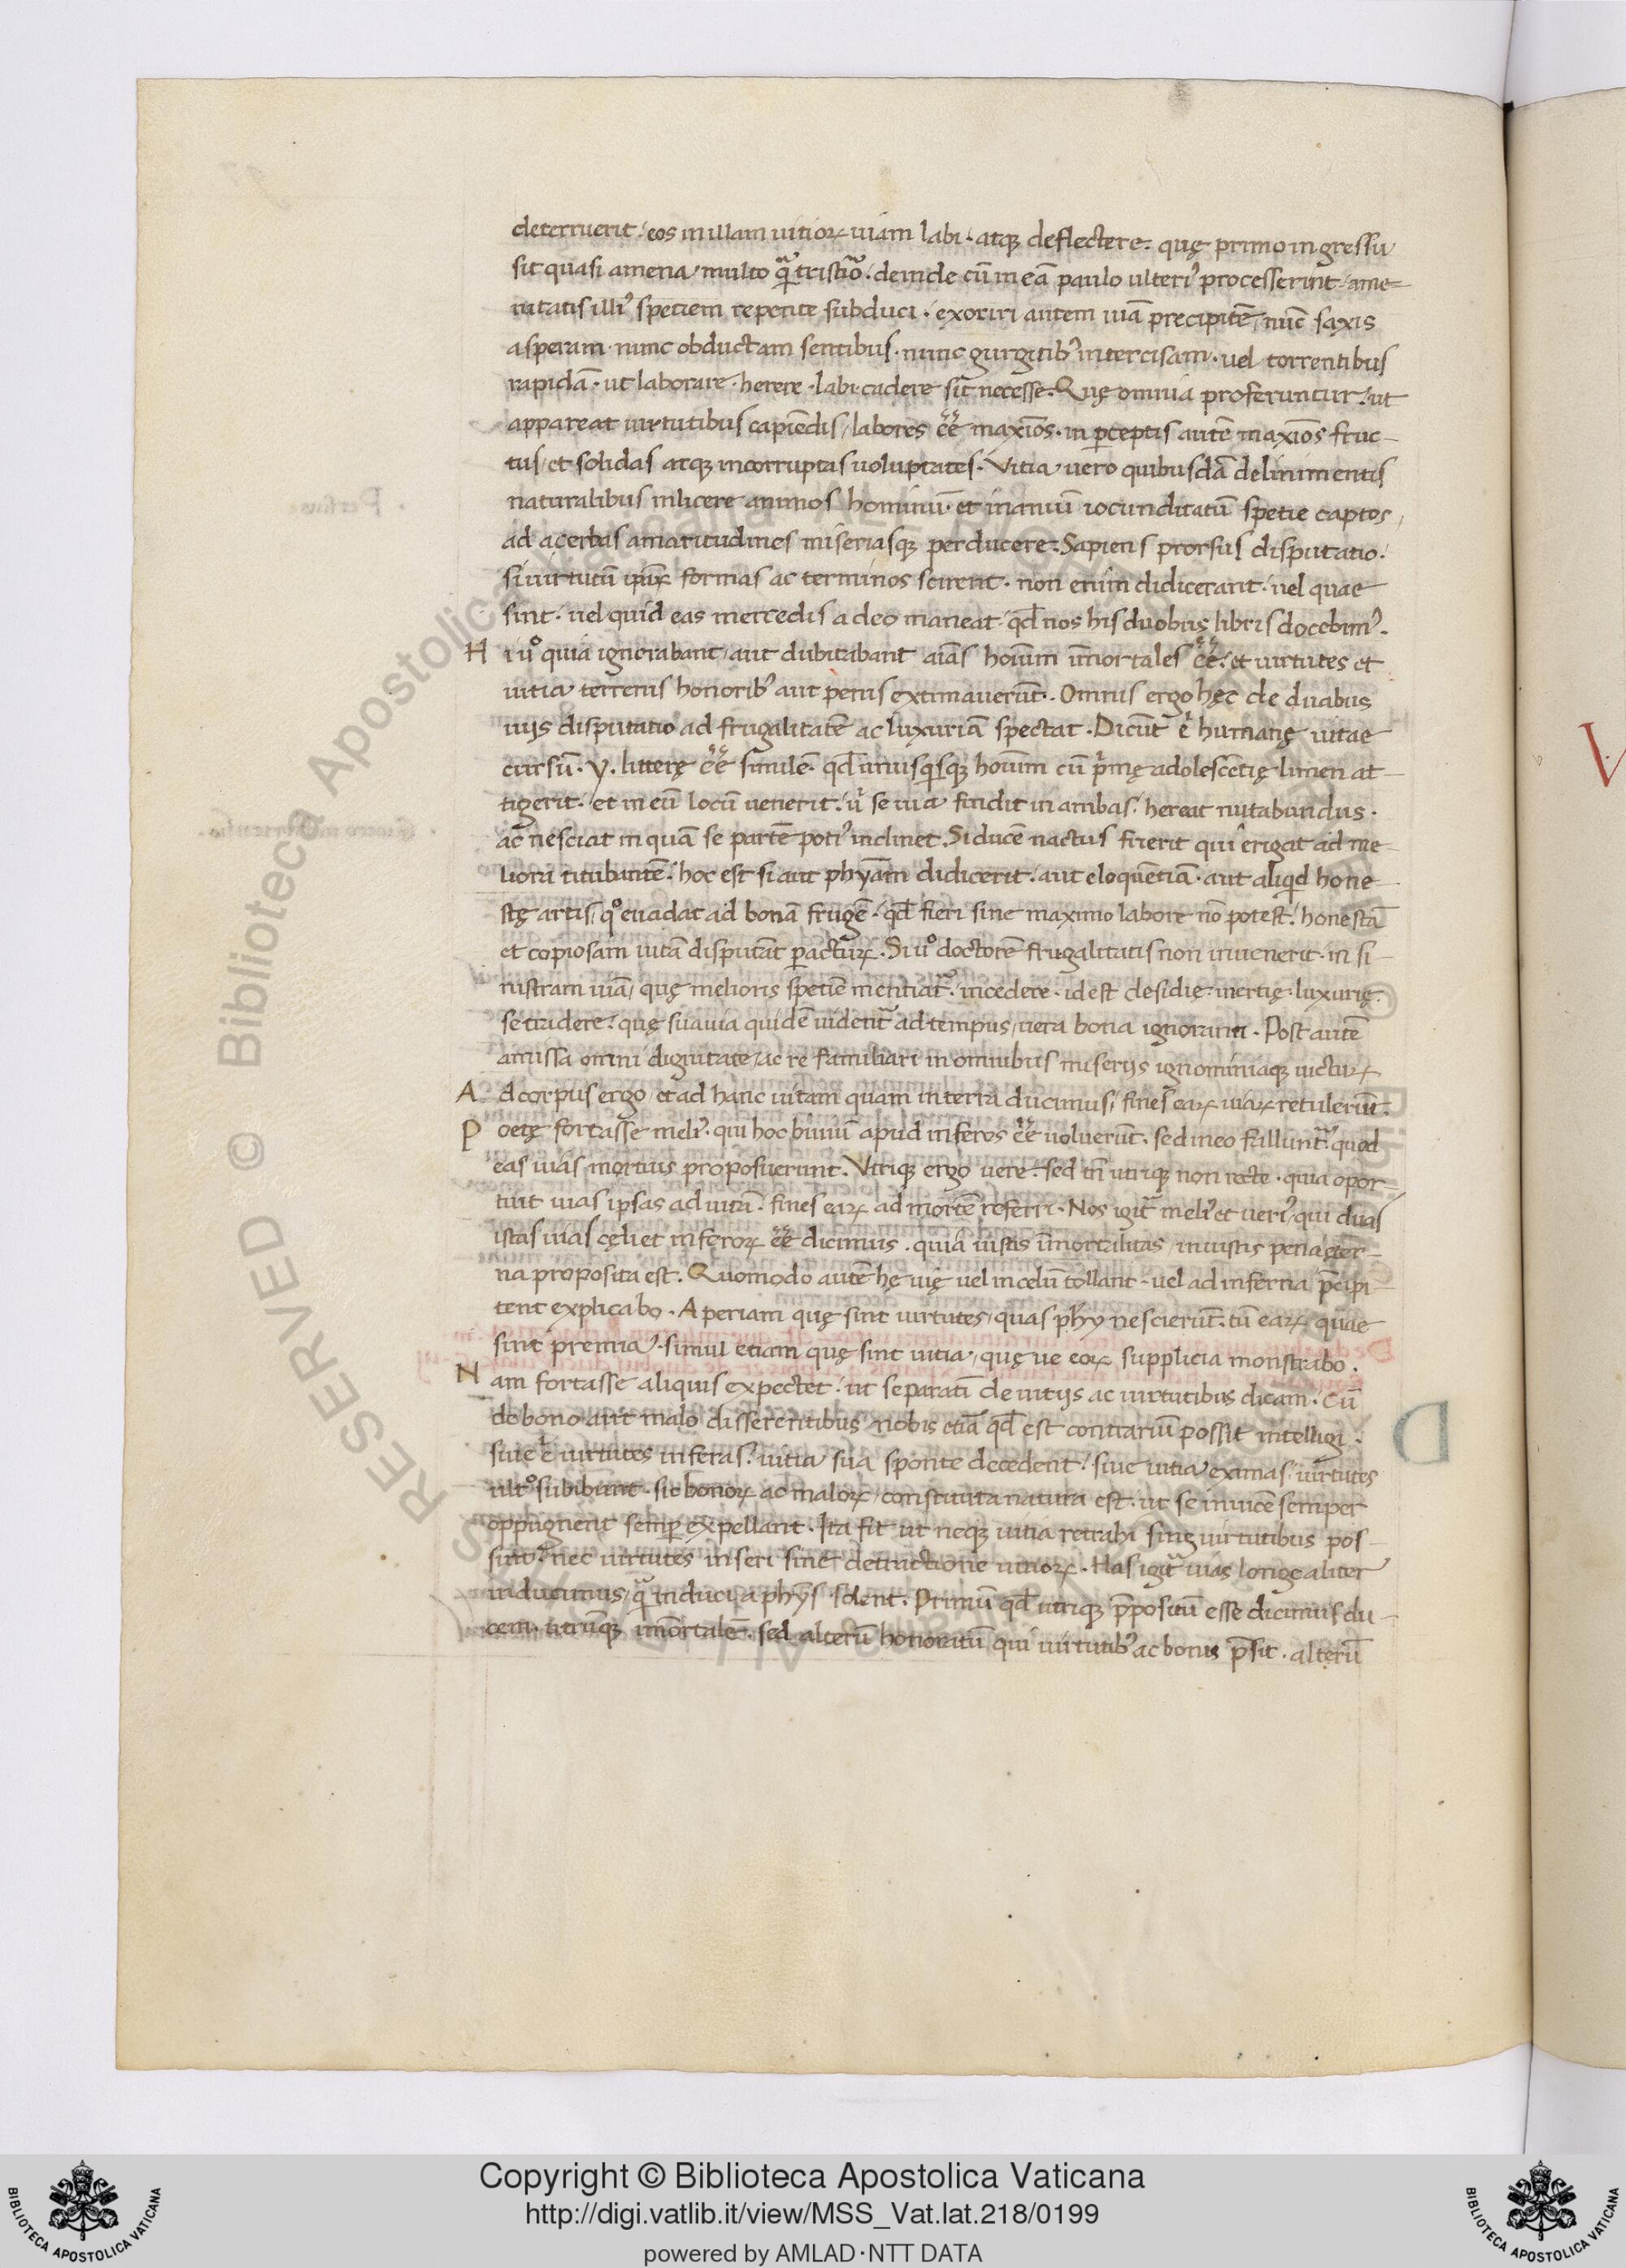 deterruerit. eos in illam uitioꝝ uiam labi. atqꝫ deflectere. quę primo ingressu
sit quasi amena multo qᷓ tristior. deinde cū in eā paulo ulteriꝰ processerint. ame=
nitatis illiꝰ speciem repente subduci. exoriri autem uiā precipitē nūc saxis
asperam. nunc obductam sentibus. nunc gurgitibꝰ intercisam. uel torrentibus
rapidā. ut laborare. herere. labi. cadere sit necesse. Quę omnia proferuntur. ut
appareat uirtutibus capiēdis labores eē maxīos. in ꝑceptis autē maxīos fruc-
tus et solidas atqꝫ incorruptas uoluptates. Vitia uero quibusdā delinimentis
naturalibus inlicere animos hominū. et inaniū iocunditatū spetie captos
ad acerbas amaritudines miseriasqꝫ perducere. Sapiens prorsus disputatio.
si uirtutū ipsaꝝ formas ac terminos scirent. non enim didicerant. uel quae
sint. uel quid eas mercedis a deo maneat. qd̄ nos his duobus libris docebimꝰ.
H i uº quia ignorabant aut dubitabant aīas hoīum īmortales eē. et uirtutes et
uitia terrenis honoribꝰ aut penis extimauerūt. Omnis ergo hęc de duabus
uiis disputatio ad frugalitatē ac luxuriā spectat. Dicūt .n. humanę uitae
cursū. Y. litterę eē similē. qd̄ unusqisqꝫ hoīum cū pͥmę adolescētię limen at-
tigerit. et in eū locū uenerit. uͥ se uia findit in ambas. hereat nutabundus.
ac nesciat in quā se partē potiꝰ inclinet. Si ducē nactus fuerit qui erigat ad me-
liora titubantē. hoc est si aut phyām didicerit. aut eloquētiā. aut aliqd hone-
stę artis qº euadat ad bonā frugē. qd̄ fieri sine maximo labore nō potest. honestā
et copiosam uitā disputāt ꝑacturꝝ. Si uº doctorē frugalitatis non inuenerit. in si-
nistram uiā quę melioris spetiē mentiatᷣ. incedere. id est desidię inertię. luxurię
se tradere. quę suauia quidē uidentᷣ ad tempus uera bona ignoranti. Post autē
amissa omni dignitate ac re familiari in omnibus miseriis ignominiaqꝫ uicturꝝ
A d corpus ergo et ad hanc uitam quam in terra ducimus fines eaꝝ uiaꝝ retulerūt.
P oetę fortasse meliꝰ. qui hoc biuiū apud inferos eē uoluerūt. sed in eo falluntᷣ. quod
eas uias mortuis proposuerunt. Vtriqꝫ ergo uere. sed tn̄ utriqꝫ non recte. quia opor-
tuit uias ipsas ad uitā. fines eaꝝ ad mortē referri. Nos igitᷣ meliꝰ et ueriꝰ qui duas
istas uias cęli et inferoꝝ eē dicimus. quia iustis īmortalitas iniustis pena ęter-
na proposita est. Quomodo autē hę uię uel in celū tollant. uel ad inferna p̄cipi-
tent explicabo. Aperiam quę sint uirtutes quas phy nescierūt. tū eaꝝ quae
sint premia. simul etiam quę sint uitia quę ue eoꝝ supplicia monstrabo.
N am fortasse aliquis expectet. ut separatī de uitiis ac uirtutibus dicam. Cū
de bono aut malo disserentibus nobis etiā qd̄ est contrariū possit intelligi.
siue .n. uirtutes inferas. uitia sua sponte decedent. siue uitia eximas. uirtutes
ultº subibunt. sic bonoꝝ ac maloꝝ constituta natura est. ut se inuicē semper
oppugnent semꝑ expellant. Ita fit ut neqꝫ uitia retrahi sine uirtutibus pos-
sint. nec uirtutes inseri sine detractione uitioꝝ. Has igitᷣ uias longe aliter
inducimus qᷓ induci a phys solent. Primū qd̄ utriqꝫ p̄positū esse dicimus du-
cem. utrūqꝫ īmortalē. sed alterū honoratū qui uirtutibꝰ ac bonis p̄sit. alterū
Copyright © Biblioteca Apostolica Vaticana
http://digi.vatlib.it/view/MSS_Vat.lat.218/0199
powered by AMLAD·NTT DATA